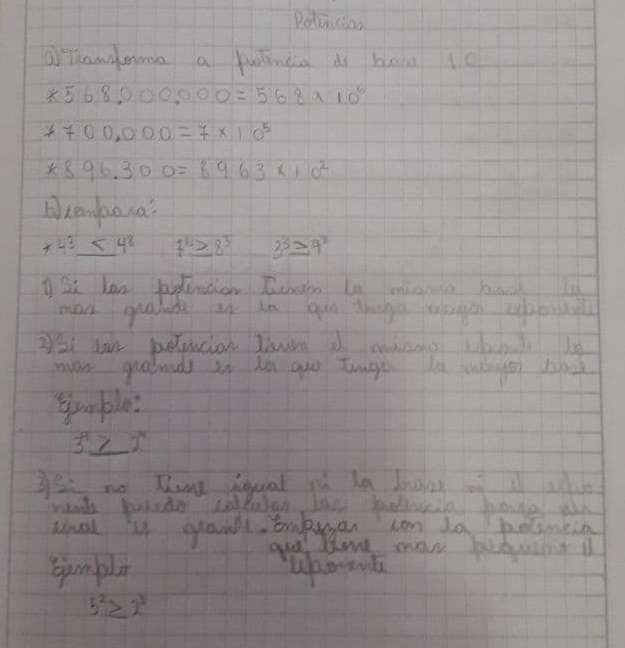 Potencias
a) Transforma a potencia de base 10
*568,000,000=568x10⁶
*700,000=7x10⁵
*896.300=8963x10²
b) compara:
*4³ < 4⁸ 8³
1) Si las potencias tienen la misma base la
mas grande es la que tenga mayor exponente
2) Si las potencias tienen el mismo la
mas grande es la que tenga la mayor base
Ejemplo:
3) Si no tiene igual ni la base ni el expo
nente puedo calcular las potencia para ver
cual es grande. Empezar con la potencia
que tiene mas pequeño el
Ejemplo exponente